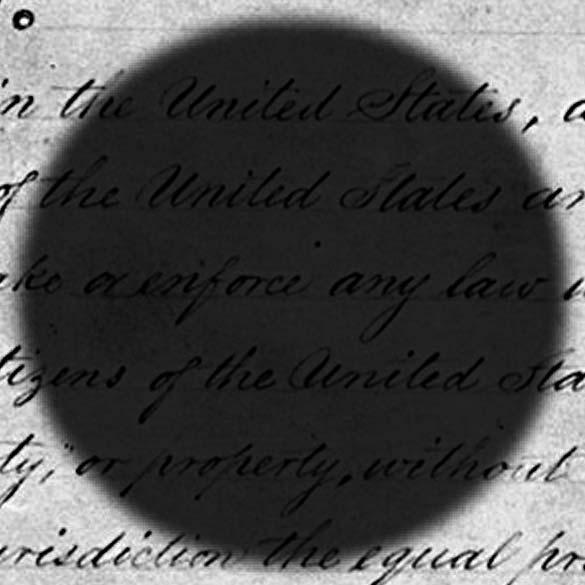 in the United States, a
of the United States an
ake or enforce any law w
tizens of the United Sta
ty, or property, without
urisdiction the equal pro